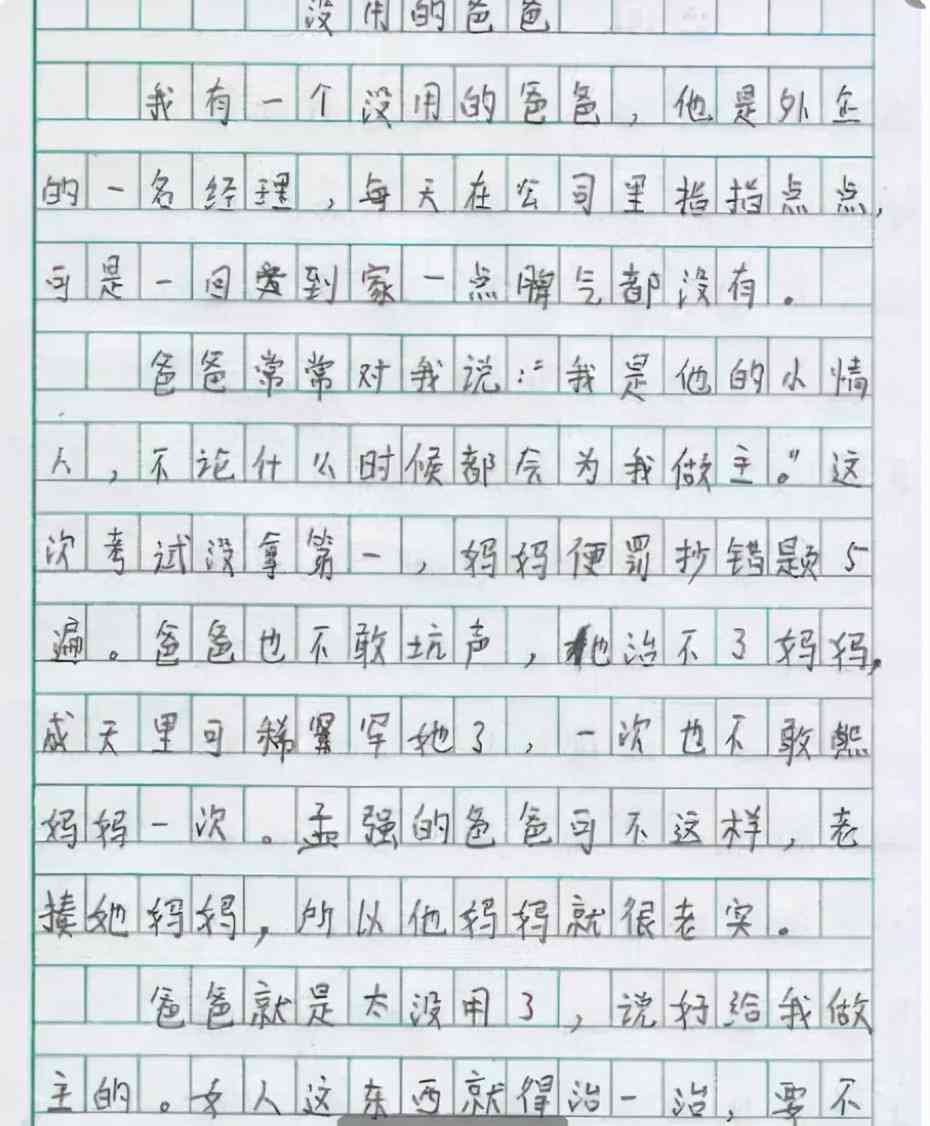 没用的爸爸
我有一个没用的爸爸，他是外企
的一名经理，每天在公司里指指点点，
可是一回到家一点脾气都没有。
爸爸常常对我说：“我是他的小情
人，不论什么时候都会为我做主。”这
次考试没拿第一，妈妈便罚抄错题5
遍。爸爸也不敢坑声，他治不了妈妈，
成天里可稀罕她了，一次也不敢熊
妈妈一次。孟强的爸爸可不这样，老
揍她妈妈，所以他妈妈就很老实。
爸爸就是太没用了，说好给我做
主的。女人这东西就得治一治，要不